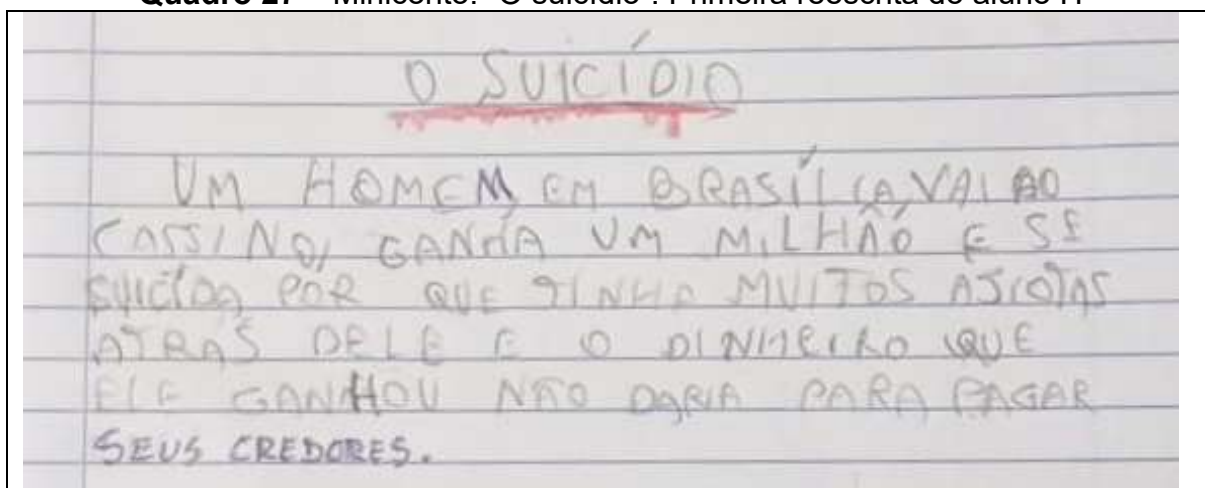 Quadro 27 – Miniconto: "O suicídio": Primeira reescrita do aluno H
O SUICÍDIO
UM HOMEM, EM BRASÍLIA, VAI AO
CASSINO, GANHA UM MILHÃO E SE
SUICIDA POR QUE TINHA MUITOS AJIOTAS
ATRAS DELE E O DINHEIRO QUE
ELE GANHOU NÃO DARIA PARA PAGAR
SEUS CREDORES.